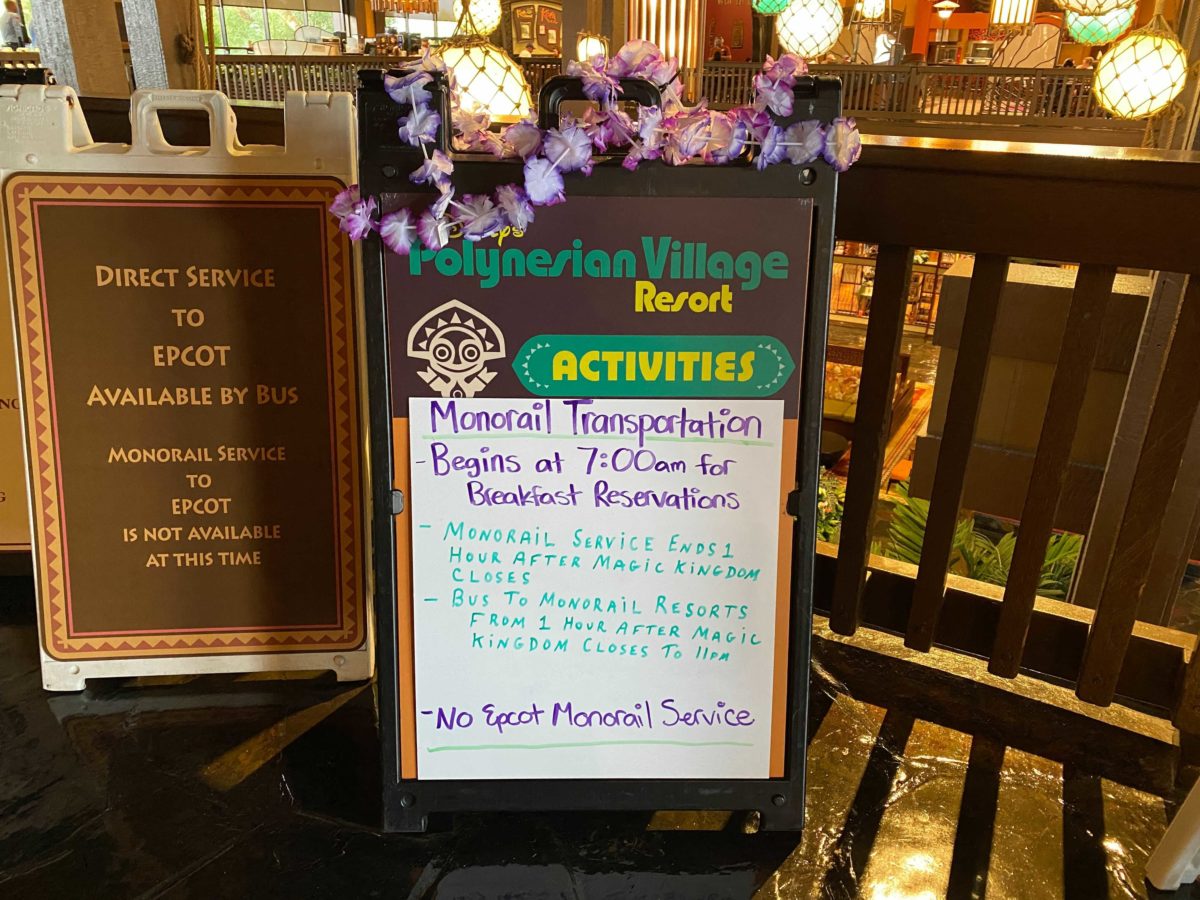 DIRECT SERVICE
TO
EPCOT
AVAILABLE BY BUS
MONORAIL SERVICE
TO
EPCOT
IS NOT AVAILABLE
AT THIS TIME
Polynesian Village
Resort
ACTIVITIES
Monorail Transportation
- Begins at 7:00am for
Breakfast Reservations
- MONORAIL SERVICE ENDS 1
HOUR AFTER MAGIC KINGDOM
CLOSES
- BUS TO MONORAIL RESORTS
FROM 1 HOUR AFTER MAGIC
KINGDOM CLOSES TO 11PM
- No Epcot Monorail Service